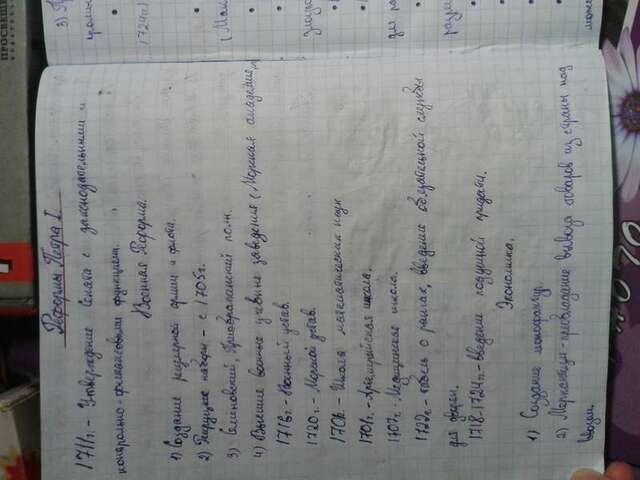 Реформы Петра I.
1711г. - Утверждение Сената с законодательными и
контрольно-финансовыми функциями.
Военная Реформа.
1) Создание регулярной армии и флота.
2) Рекрутские наборы - с 1705г.
3) Семеновский, Преображенский полк.
4) Высшие военные учебные заведения (Морская академия)
1716г. - Военный устав.
1720г. - Морской устав.
1701г. - Школа математических наук
1701г. - Артиллерийская школа.
1707г. Медицинская школа.
1722г. - табель о рангах, введение обязательной службы
для дворян.
1718-1724г. - введение подушной подати.
Экономика.
1) Создание мануфактур.
2) Меркантилизм - превышение вывоза товаров из страны над
ввозом.
3)
1724г)
(
для ра